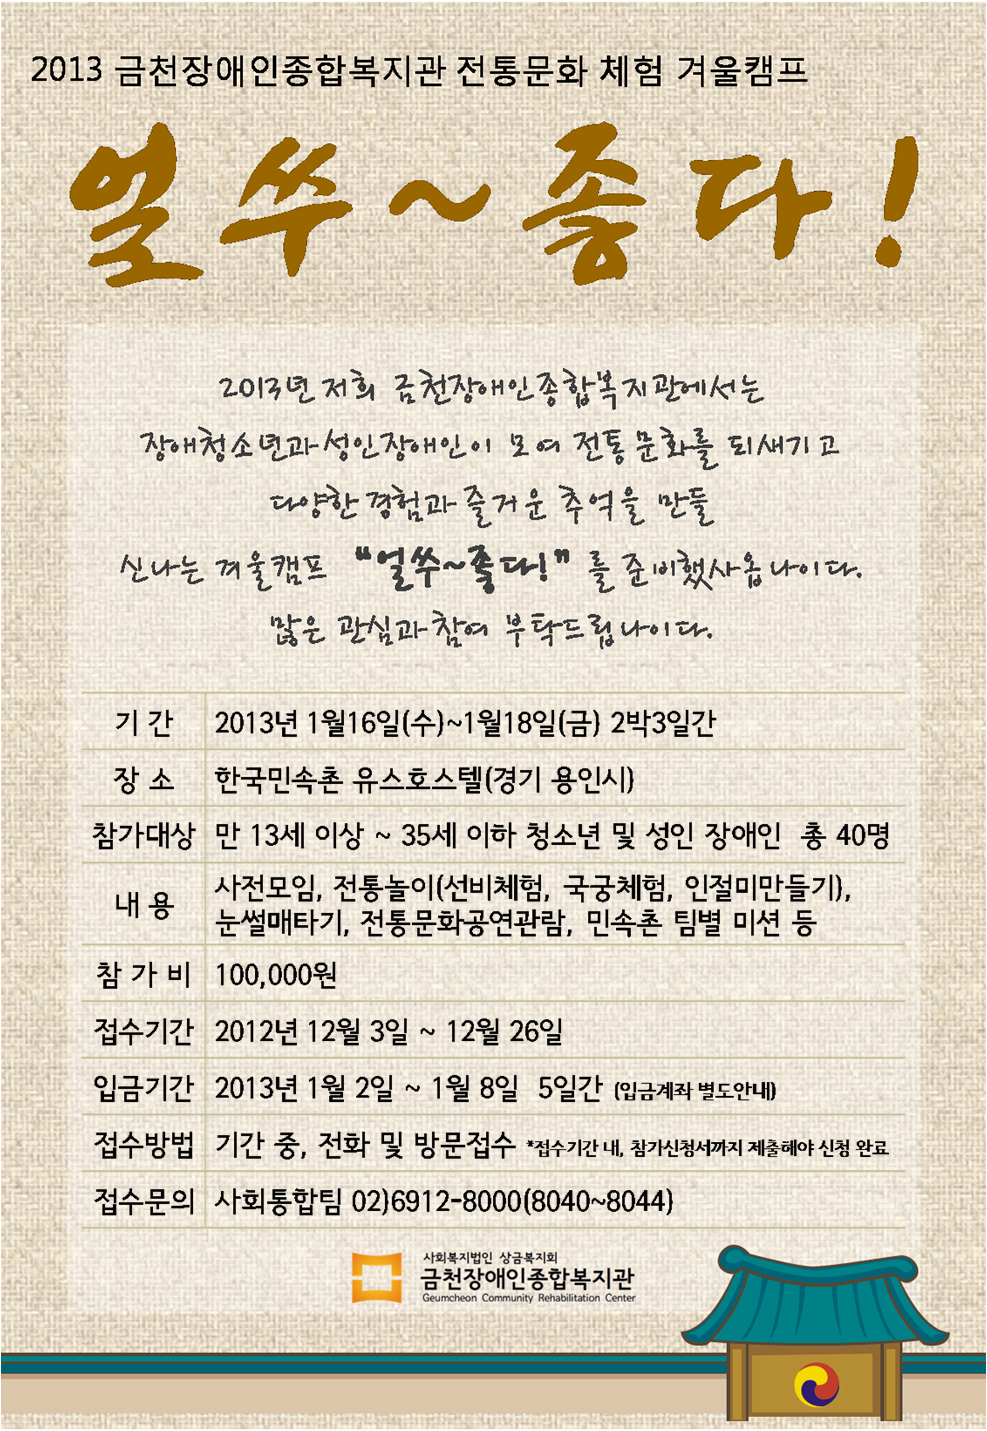 2013 금천장애인종합복지관 전통문화 체험 겨울캠프
얼쑤~좋다!
2013년 저희 금천장애인종합복지관에서는
장애청소년과 성인장애인이 모여 전통문화를 되새기고
다양한 경험과 즐거운 추억을 만들
신나는 겨울캠프 "얼쑤~좋다!" 를 준비했사옵나이다.
많은 관심과 참여 부탁드립나이다.
기 간 2013년 1월16일(수)~1월18일(금) 2박3일간
장 소 한국민속촌 유스호스텔(경기 용인시)
참가대상 만 13세 이상 ~ 35세 이하 청소년 및 성인 장애인 총 40명
내 용 사전모임, 전통놀이(선비체험, 국궁체험, 인절미만들기),
눈썰매타기, 전통문화공연관람, 민속촌 팀별 미션 등
참 가 비 100,000원
접수기간 2012년 12월 3일 ~ 12월 26일
입금기간 2013년 1월 2일 ~ 1월 8일 5일간 (입금계좌 별도안내)
접수방법 기간 중, 전화 및 방문접수 *접수기간 내, 참가신청서까지 제출해야 신청 완료
접수문의 사회통합팀 02)6912-8000(8040~8044)
사회복지법인 상금복지회
금천장애인종합복지관
Geumcheon Community Rehabilitation Center